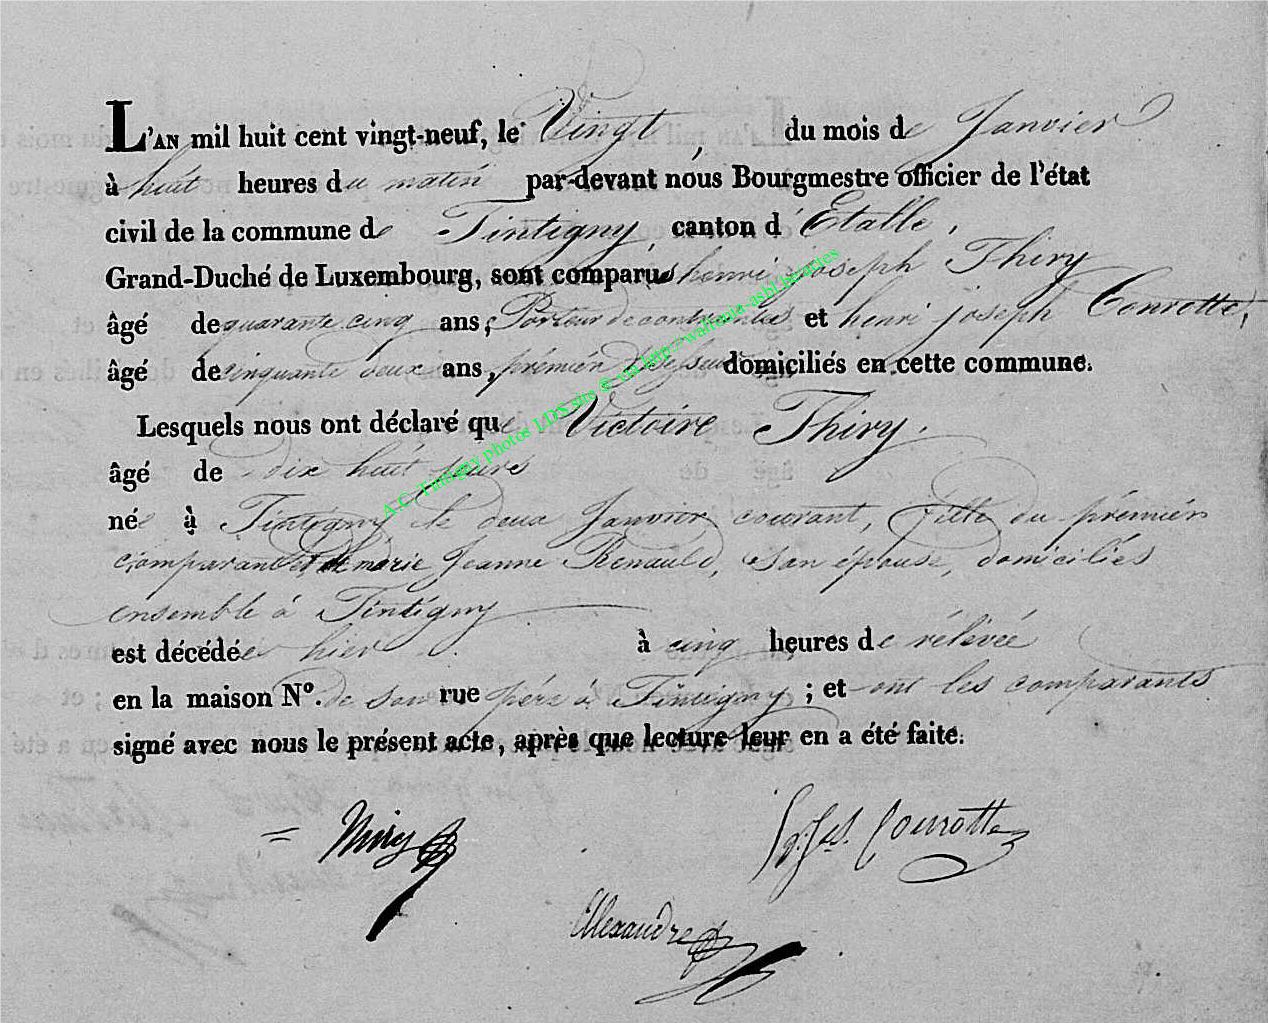 L'AN mil huit cent vingt-neuf, le Vingt, du mois de Janvier
à huit heures du matin par-devant nous Bourgmestre officier de l'état
civil de la commune de Tintigny, canton d'Etalle,
Grand-Duché de Luxembourg, sont comparus henri joseph Thiry
âgé de quarante cinq ans, Porteur de contraintes et henri joseph Conrotte,
âgé de cinquante deux ans, prémiér domiciliés en cette commune.
Lesquels nous ont déclaré que Victoire Thiry.
âgé de dix huit jours
née à Tintigny le deux Janvier courant, fille du prémiér
comparant et de marie Jeanne Renauld, son épouse, domiciliés
ensemble à Tintigny
est décédée hier à cinq heures de rélévée
en la maison N°. de son rue pére à Tintigny ; et ont les comparants
signé avec nous le présent acte, après que lecture leur en a été faite.
Thiry
Conrotte
Alexandre
A.C. Tintigny photos LDS site © via http://wallonia-asbl.be/actes